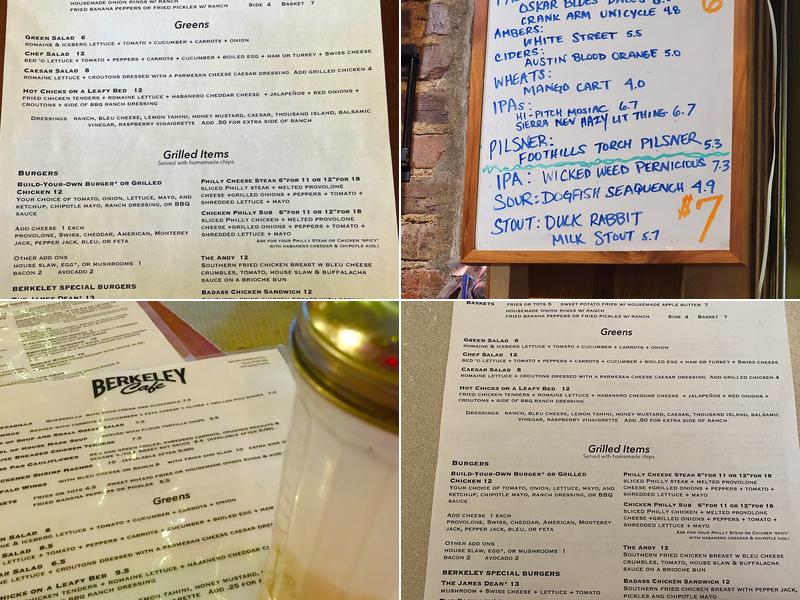 HOUSEMADE ONION RINGS W/ RANCH
FRIED BANANA PEPPERS OR FRIED PICKLES W/ RANCH SIDE 4 BASKET 7
Greens
GREEN SALAD 6
ROMAINE & ICEBERG LETTUCE + TOMATO + CUCUMBER + CARROTS + ONION
CHEF SALAD 12
BED 'O LETTUCE + TOMATO + PEPPERS + CARROTS + CUCUMBER + BOILED EGG + HAM OR TURKEY + SWISS CHEESE
CAESAR SALAD 8
ROMAINE LETTUCE + CROUTONS DRESSED WITH A PARMESAN CHEESE CAESAR DRESSING ADD GRILLED CHICKEN 4
HOT CHICKS ON A LEAFY BED 12
FRIED CHICKEN TENDERS + ROMAINE LETTUCE + HABANERO CHEDDAR CHEESE + JALAPEÑOS + RED ONIONS +
CROUTONS + SIDE OF BBQ RANCH DRESSING
DRESSINGS RANCH, BLEU CHEESE, LEMON TAHINI, HONEY MUSTARD, CAESAR, THOUSAND ISLAND, BALSAMIC
VINEGAR, RASPBERRY VINAIGRETTE ADD .50 FOR EXTRA SIDE OF RANCH
Grilled Items
Served with homemade chips
BURGERS
BUILD-YOUR-OWN BURGER* OR GRILLED
CHICKEN 12
YOUR CHOICE OF TOMATO, ONION, LETTUCE, MAYO, AND
KETCHUP, CHIPOTLE MAYO, RANCH DRESSING, OR BBQ
SAUCE
ADD CHEESE 1 EACH
PROVOLONE, SWISS, CHEDDAR, AMERICAN, MONTEREY
JACK, PEPPER JACK, BLEU, OR FETA
OTHER ADD ONS
HOUSE SLAW, EGG*, OR MUSHROOMS 1
BACON 2 AVOCADO 2
BERKELEY SPECIAL BURGERS
THE JAMES DEAN* 13
PHILLY CHEESE STEAK 6"FOR 11 OR 12"FOR 18
SLICED PHILLY STEAK + MELTED PROVOLONE
CHEESE +GRILLED ONIONS + PEPPERS + TOMATO +
SHREDDED LETTUCE + MAYO
CHICKEN PHILLY SUB 6"FOR 11 OR 12"FOR 18
SLICED PHILLY CHICKEN + MELTED PROVOLONE
CHEESE +GRILLED ONIONS + PEPPERS + TOMATO +
SHREDDED LETTUCE + MAYO
ASK FOR YOUR PHILLY STEAK OR CHICKEN "SPICY"
WITH HABANERO CHEDDAR & CHIPOTLE AIOLI
THE ANDY 12
SOUTHERN FRIED CHICKEN BREAST W BLEU CHEESE
CRUMBLES, TOMATO, HOUSE SLAW & BUFFALACHA
SAUCE ON A BRIOCHE BUN
BADASS CHICKEN SANDWICH 12
OSKAR BLUES
CRANK ARM UNICYCLE 4.8
6
AMBERS:
WHITE STREET 5.5
CIDERS:
AUSTIN BLOOD ORANGE 5.0
WHEATS:
MANGO CART 4.0
IPAs:
HI-PITCH MOSIAC 6.7
SIERRA NEV HAZY LIT THING 6.7
PILSNER:
FOOTHILLS TORCH PILSNER 5.3
IPA: WICKED WEED PERNICIOUS 7.3
SOUR: DOGFISH SEAQUENCH 4.9
STOUT: DUCK RABBIT
MILK STOUT 5.7
$7
BERKELEY
Cafe
QUESADILLA WITH SOUR CREAM AND GUACAMOLE 7.5
OF SOUP AND SMALL GREEN SALAD 7.5
WL OF HOUSE MADE SOUP
USE BREADED CHICKEN TENDERS 7.5
PAG CAULIFLOWER
CKENEE SHRIMP NACHO
FALO WINGS
FRIES OR TOTS 4.5
FRIED BANANA PEPPERS OR PICKLES 5.5
Greens
LETTUCE + TOMATO + CUCUMBER + CARROTS + ONION
8.5
LETTUCE + TOMATO + PEPPERS + CARROTS + CUCUMBER + BOILED EGG + HAM
SAR SALAD 6.5
CROUTONS DRESSED WITH A PARMESAN CHEESE CAESAR
HICKS ON A LEAFY BED 9.5
CHICKEN TENDERS + ROMAINE LETTUCE + HABANERO CHEDDAR
LEMON TAHINI, HONEY MUSTARD,
BASKETS FRIES OR TOTS 5 SWEET POTATO FRIES W/ HOUSEMADE APPLE BUTTER 7
HOUSEMADE ONION RINGS W/ RANCH
FRIED BANANA PEPPERS OR FRIED PICKLES W/ RANCH SIDE 4 BASKET 7
Greens
GREEN SALAD 6
ROMAINE & ICEBERG LETTUCE + TOMATO + CUCUMBER + CARROTS + ONION
CHEF SALAD 12
BED 'O LETTUCE + TOMATO + PEPPERS + CARROTS + CUCUMBER + BOILED EGG + HAM OR TURKEY + SWISS CHEESE
CAESAR SALAD 8
ROMAINE LETTUCE + CROUTONS DRESSED WITH A PARMESAN CHEESE CAESAR DRESSING ADD GRILLED CHICKEN 4
HOT CHICKS ON A LEAFY BED 12
FRIED CHICKEN TENDERS + ROMAINE LETTUCE + HABANERO CHEDDAR CHEESE + JALAPEÑOS + RED ONIONS +
CROUTONS + SIDE OF BBQ RANCH DRESSING
DRESSINGS RANCH, BLEU CHEESE, LEMON TAHINI, HONEY MUSTARD, CAESAR, THOUSAND ISLAND, BALSAMIC
VINEGAR, RASPBERRY VINAIGRETTE ADD .50 FOR EXTRA SIDE OF RANCH
Grilled Items
Served with homemade chips
BURGERS
BUILD-YOUR-OWN BURGER* OR GRILLED
CHICKEN 12
YOUR CHOICE OF TOMATO, ONION, LETTUCE, MAYO, AND
KETCHUP, CHIPOTLE MAYO, RANCH DRESSING, OR BBQ
SAUCE
ADD CHEESE 1 EACH
PROVOLONE, SWISS, CHEDDAR, AMERICAN, MONTEREY
JACK, PEPPER JACK, BLEU, OR FETA
OTHER ADD ONS
HOUSE SLAW, EGG*, OR MUSHROOMS 1
BACON 2 AVOCADO 2
BERKELEY SPECIAL BURGERS
THE JAMES DEAN* 13
MUSHROOM + SWISS CHEESE + LETTUCE + TOMATO
PHILLY CHEESE STEAK 6"FOR 11 OR 12"FOR 18
SLICED PHILLY STEAK + MELTED PROVOLONE
CHEESE +GRILLED ONIONS + PEPPERS + TOMATO +
SHREDDED LETTUCE + MAYO
CHICKEN PHILLY SUB 6"FOR 11 OR 12"FOR 18
SLICED PHILLY CHICKEN + MELTED PROVOLONE
CHEESE +GRILLED ONIONS + PEPPERS + TOMATO +
SHREDDED LETTUCE + MAYO
ASK FOR YOUR PHILLY STEAK OR CHICKEN "SPICY"
WITH HABANERO CHEDDAR & CHIPOTLE AIOLI
THE ANDY 12
SOUTHERN FRIED CHICKEN BREAST W BLEU CHEESE
CRUMBLES, TOMATO, HOUSE SLAW & BUFFALACHA
SAUCE ON A BRIOCHE BUN
BADASS CHICKEN SANDWICH 12
SOUTHERN FRIED CHICKEN BREAST WITH PEPPER JACK,
PICKLES AND CHIPOTLE MAYO